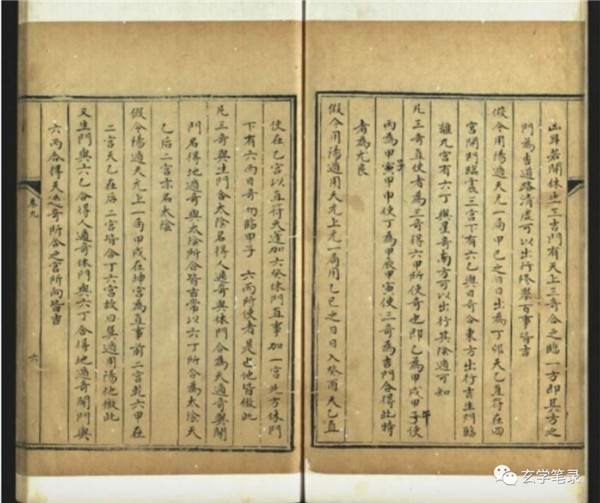 出其若開休生三吉門有天上三奇合之臨一方即其方之
門為吉道路清虛可以出行修舉百事皆吉
假令用陽遁天元一局甲己之日日出為丁卯天乙直符在四
宮開門臨震三宮下有六乙與日奇合東方出行吉生門臨
離九宮有六丁與星奇南方可以出行其陰遁可知
凡三奇直使者為三奇得六甲所使奇也即乙為甲戌甲午使
丙為甲子甲申使丁為甲辰甲寅使三奇為吉門合得此特
者為尤良
假令用陽遁用天元上元一局用乙巳之日日入癸酉天乙直
使在乙宮以直符天蓬加六癸休門直事加一宮此方休門
下有六丙日奇勿臨甲子 六丙所使者是也他皆倣此
凡三奇與生門合太陰名得人遁奇與休門合為天遁奇與開
門名得地遁奇與太陰所合皆吉常以六丁所合為太陰天
乙后二宮亦名太陰
假令用陽遁天元上一局甲戌在坤宮為直事前二宮乾六甲在
二宮天乙在后二宮皆合丁六宮故曰莫遁用陽他倣此
又生門與六乙合得人遁奇休門與六丁合得地遁奇開門與
六丙合得天遁奇所合之宮所向皆吉
卷九
六
玄学笔录